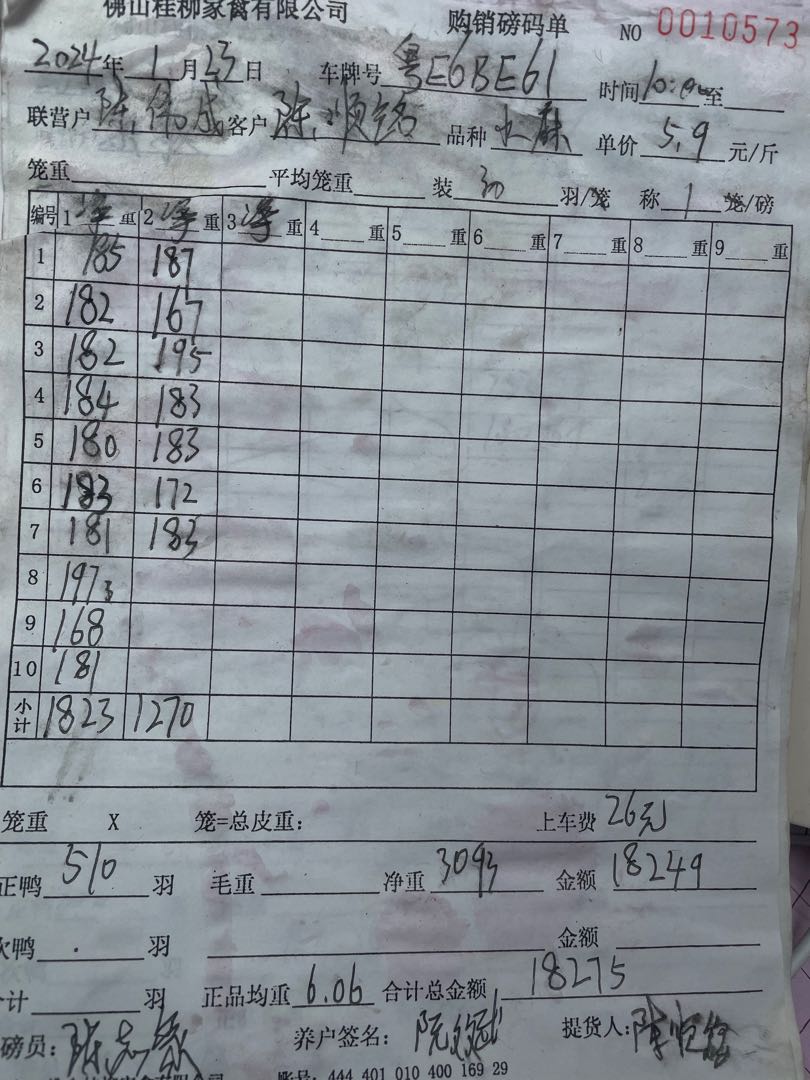 佛山桂柳家禽有限公司 购销磅码单 NO 0010573
2024年1月23日 车牌号 粤E6BE61 时间10:00至
联营户 陈伟成 客户 陈顺铭 品种 大麻 单价 5.9 元/斤
笼重 平均笼重 装 30 羽/笼 称 1 笼/磅
编号 1 净 重 2 净 重 3 净 重 4 重 5 重 6 重 7 重 8 重 9 重
1 185 187
2 182 167
3 182 195
4 184 183
5 180 183
6 183 172
7 181 183
8 197
9 168
10 181
小计 1823 1270
笼重 X 笼=总皮重: 上车费 26元
正鸭 510 羽 毛重 净重 3093 金额 18249
次鸭 羽 金额
计 羽 正品均重 6.06 合计总金额 18275
磅员: 养户签名: 提货人: 陈顺铭
账号: 444 401 010 400 169 29